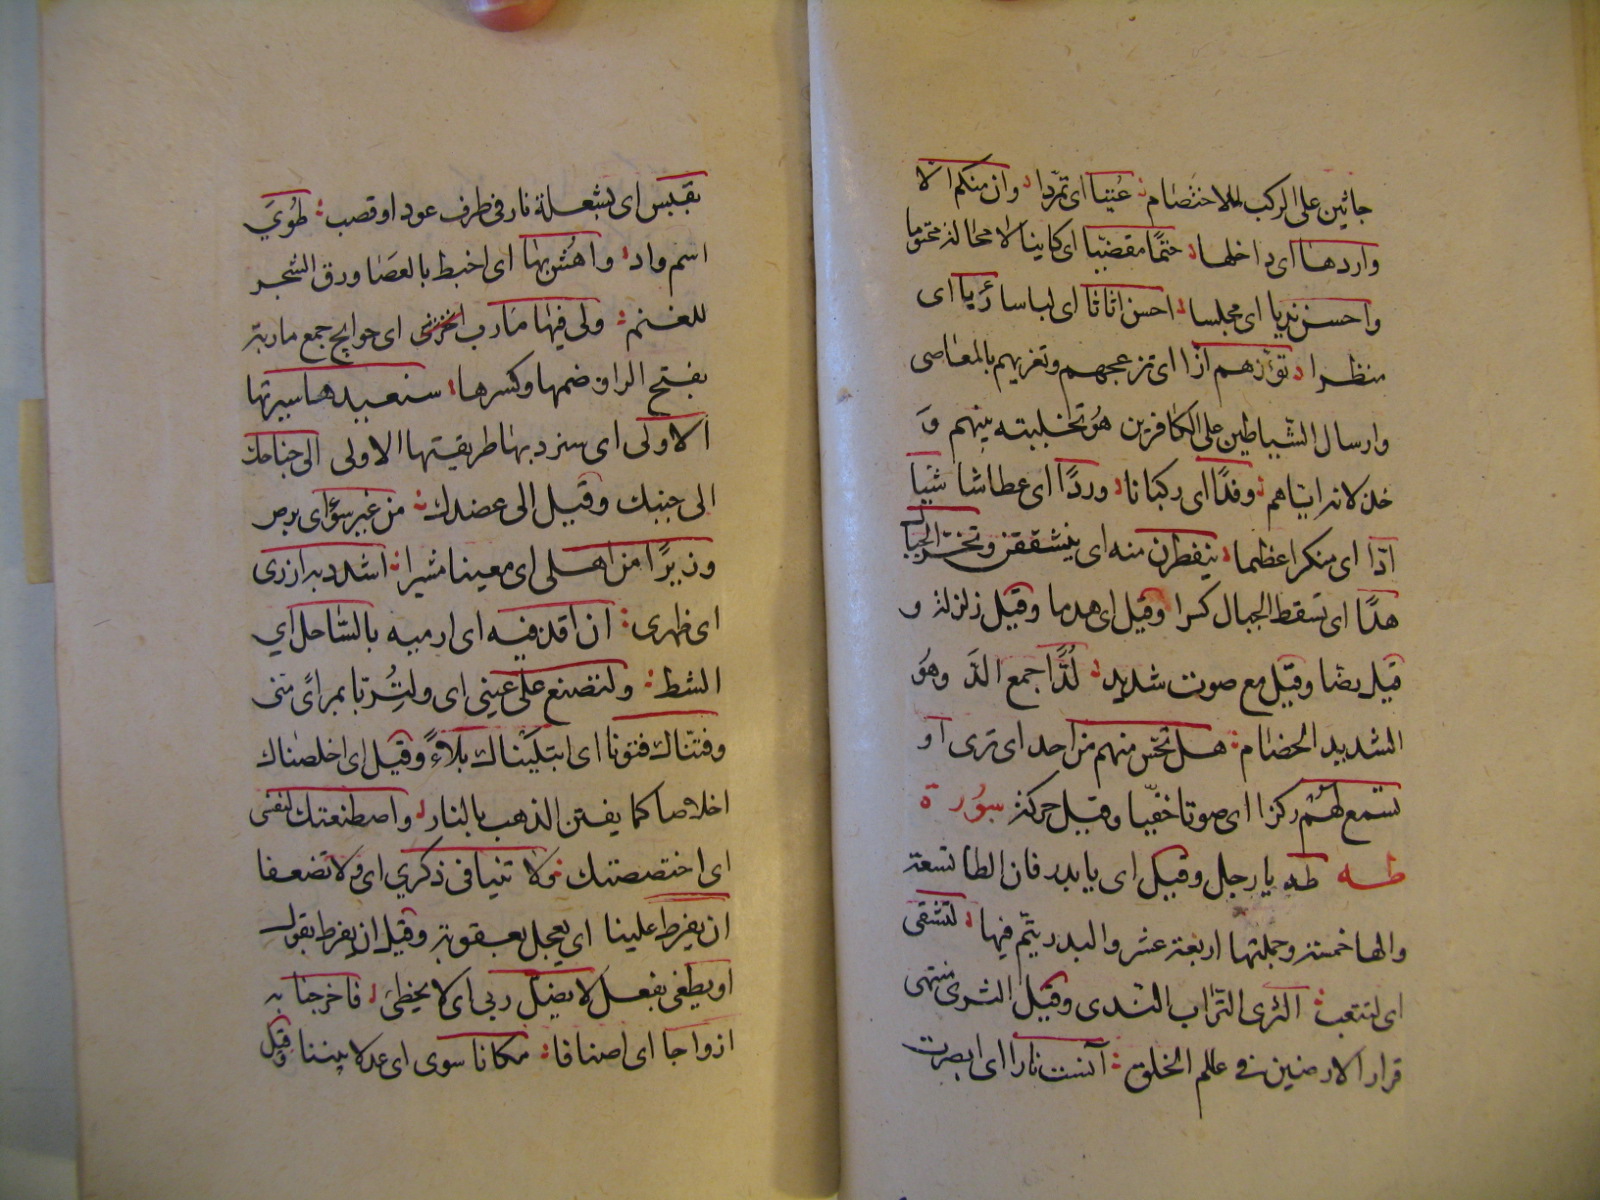 جاثين على الركب للاختصام عُتيا اى تمرّدا وان منكم الا
واردها اى داخلها حتمًا مقضيّا اى كاينا لا محالة محتوما
واحسن نديا اى مجلسا احسن اثاثا اى لباسا رُئيا اى
منظرا تؤزهم ازّا اى تزعجهم وتغريهم بالمعاصى
وارسال الشياطين على الكافرين هو تخليته بينهم وَ
خذلانه اياهم وفدًا اى ركبانا وردًا اى عطاشا شيا
ادّا اى منكرا عظيما ينفطرن منه اى ينشققن وتخر الجبا
هدًا اى تسقط الجبال كسرا وقيل اى هدما وقيل زلزلة و
قيل رضا وقيل مع صوت شديد لُدًّا جمع الدَّ وهو
الشديد الخصام هل تحسّ منهم من احد اى ترى او
تسمع لهُم ركزا اى صوتا خفيّا وقيل حركة سورة
طه طه يا رجل وقيل اى يا بدر فان الطا تسعة
والها خمسة وجملتها اربعة عشر والبدر يتم فيها لتشقى
اى لتتعب الثرى التراب الندى وقيل الثرى منتهى
قرار الارضين فى علم الخلق آنست نارا اى ابصرت
بقبس اى بشعلة نار فى طرف عود او قصب طُوىَ
اسم واد واهُش بها اى اخبط بالعصا ورق الشجر
للغنم ولى فيها مَارب اخرى اى حوايج جمع ماربة
بفتح الرا وضمها وكسرها سنعيدها سيرتها
الاولى اى سنردبها طريقتها الاولى الى جناحك
الى جنبك وقيل الى عضدك من غير سؤ اى برص
وزيرًا من اهلى اى معينا مشيرا اشدد به ازرى
اى ظهرى ان اقذفيه اى ارميه بالسّاحل اي
الشط ولتصنع على عينى اى ولتُربّا بمراىً منى
وفتنّاك فتونا اى ابتليناك بلاءً وقيل اى اخلصناك
اخلاصا كما يفتن الذهب بالنار واصطنعتك لنفسى
اى اختصصتك ولا تنيا فى ذكري اى ولا تضعفا
ان يفرط علينا اى يعجل بعقوبة وقيل ان يفرط بقول
او يطغى بفعل لا يضل ربى اى لا يخطئ فاخرجنا به
ازواجا اى اصنافا مكانا سوى اى عدلا بيننا وقيل